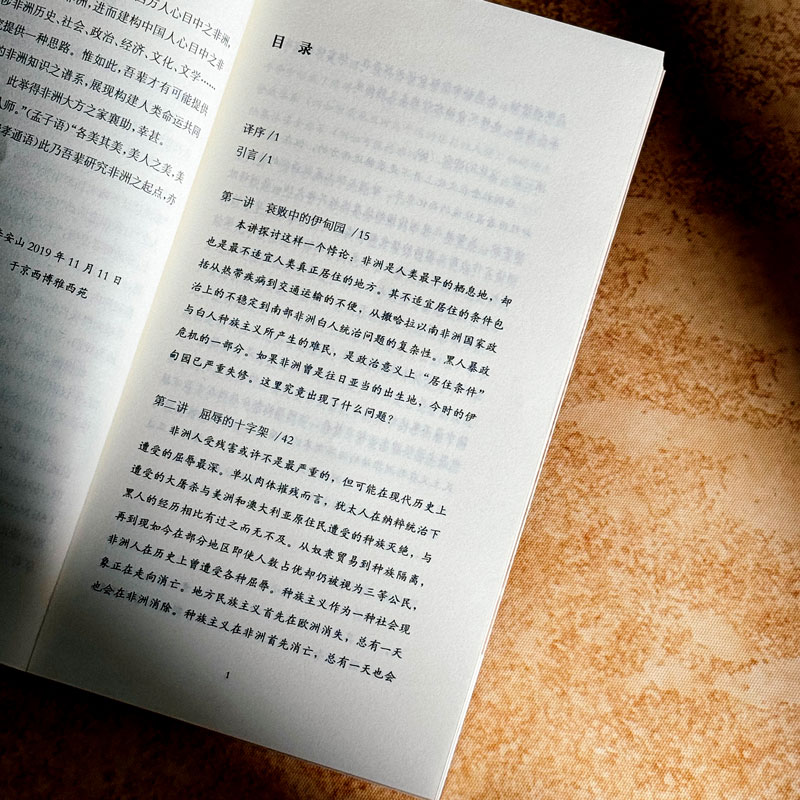 方人心目中之非洲,
洲,进而建构中国人心目中之非
涉及非洲历史、社会、政治、经济、文化、文学……
究提供一种思路。惟如此,吾辈才有可能提供
的非洲知识之谱系,展现构建人类命运共同
此举得非洲大方之家襄助,幸甚。
人师。”(孟子语)“各美其美,美人之美,美
孝通语)此乃吾辈研究非洲之起点,亦
安山2019年11月11日
于京西博雅西苑
目 录
译序/1
引言/1
第一讲 衰败中的伊甸园 /15
本讲探讨这样一个悖论:非洲是人类最早的栖息地,却
也是最不适宜人类真正居住的地方。其不适宜居住的条件包
括从热带疾病到交通运输的不便,从撒哈拉以南非洲国家政
治上的不稳定到南部非洲白人统治问题的复杂性。黑人暴政
与白人种族主义所产生的难民,是政治意义上“居住条件”
危机的一部分。如果非洲曾是往日亚当的出生地,今时的伊
甸园已严重失修。这里究竟出现了什么问题?
第二讲 屈辱的十字架 /42
非洲人受残害或许不是最严重的,但可能在现代历史上
遭受的屈辱最深。单从肉体摧残而言,犹太人在纳粹统治下
遭受的大屠杀与美洲和澳大利亚原住民遭受的种族灭绝,与
黑人的经历相比有过之而无不及。从奴隶贸易到种族隔离,
再到现如今在部分地区即使人数占优却仍被视为三等公民,
非洲人在历史上曾遭受各种屈辱。种族主义作为一种社会现
象正在走向消亡。地方民族主义首先在欧洲消失,总有一天
也会在非洲消除。种族主义在非洲首先消亡,总有一天也会
1